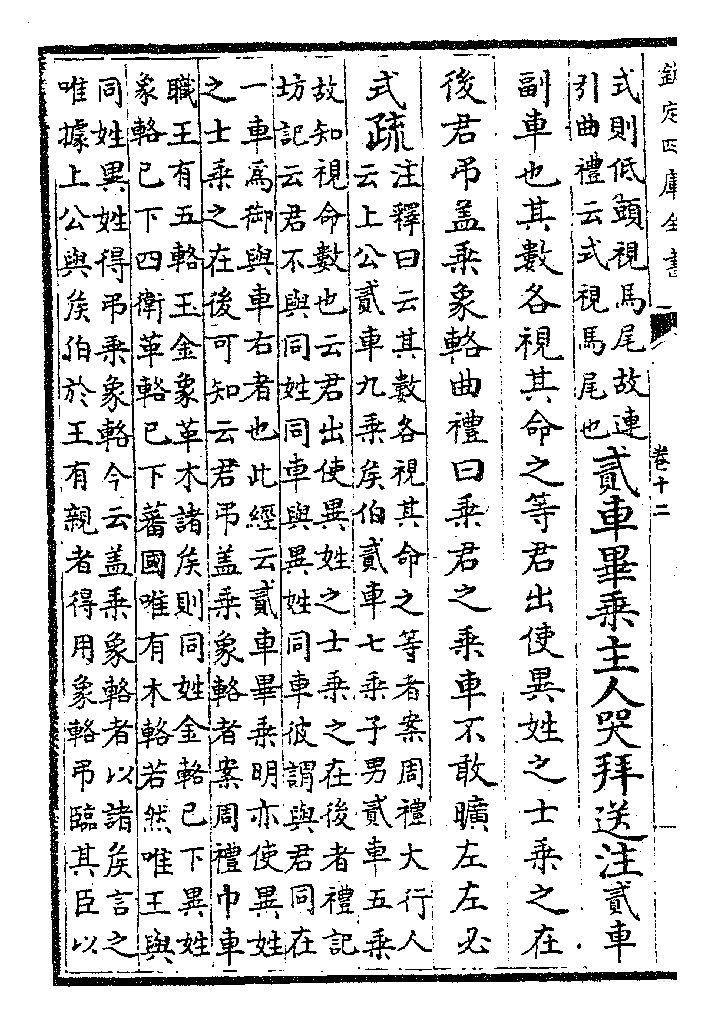 欽定四庫全書
卷十二
式則低頭視馬尾故連
引曲禮云式視馬尾也
貳車畢乘主人哭拜送注貳車
副車也其數各視其命之等君出使異姓之士乘之在
後君弔盖乘象輅曲禮曰乘君之乘車不敢曠左左必
式疏
注釋曰云其數各視其命之等者案周禮大行人
云上公貳車九乘矦伯貳車七乘子男貳車五乘
故知視命數也云君出使異姓之士乘之在後者禮記
坊記云君不與同姓同車與異姓同車彼謂與君同在
一車為御與車右者也此經云貳車畢乘明亦使異姓
之士乘之在後可知云君弔盖乘象輅者案周禮巾車
職王有五輅玉金象革木諸矦則同姓金輅已下異姓
象輅已下四衛革輅已下蕃國唯有木輅若然唯王與
同姓異姓得弔乘象輅今云盖乘象輅者以諸矦言之
唯據上公與矦伯於王有親者得用象輅弔臨其臣以